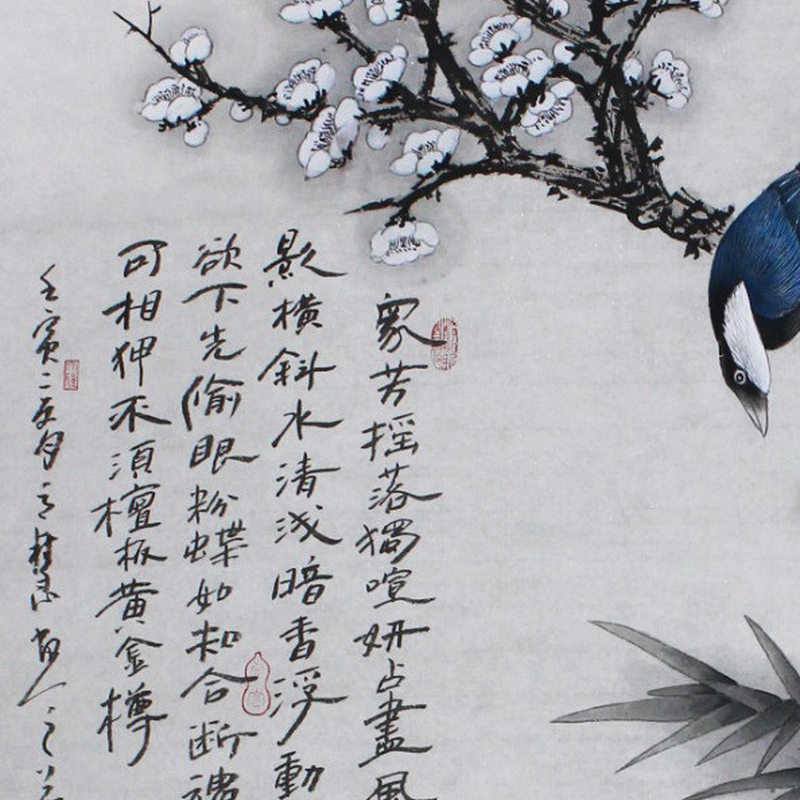 眾芳搖落獨喧妍占盡風
影橫斜水清浅暗香浮動
欲下先偷眼粉蝶如知合断魂
可相狎不須檀板黄金樽
壬寅二五月